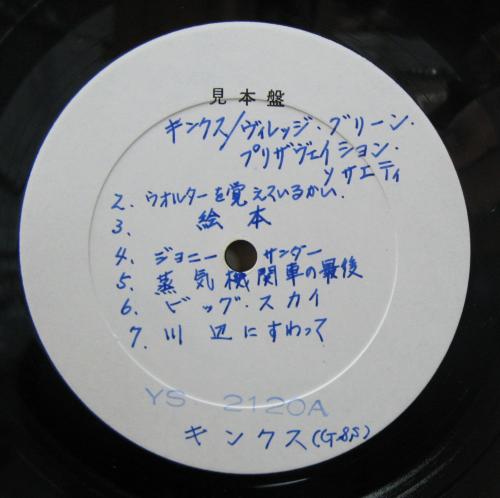 見本盤
キンクス/ヴィレッジ・グリーン・
プリザヴェイション・
ソサエティ
2. ウオルターを覚えているかい.
3. 絵本
4. ジョニー サンダー
5. 蒸気機関車の最後
6. ビッグ・スカイ
7. 川辺にすわって
YS 2120A
キンクス(G8S)